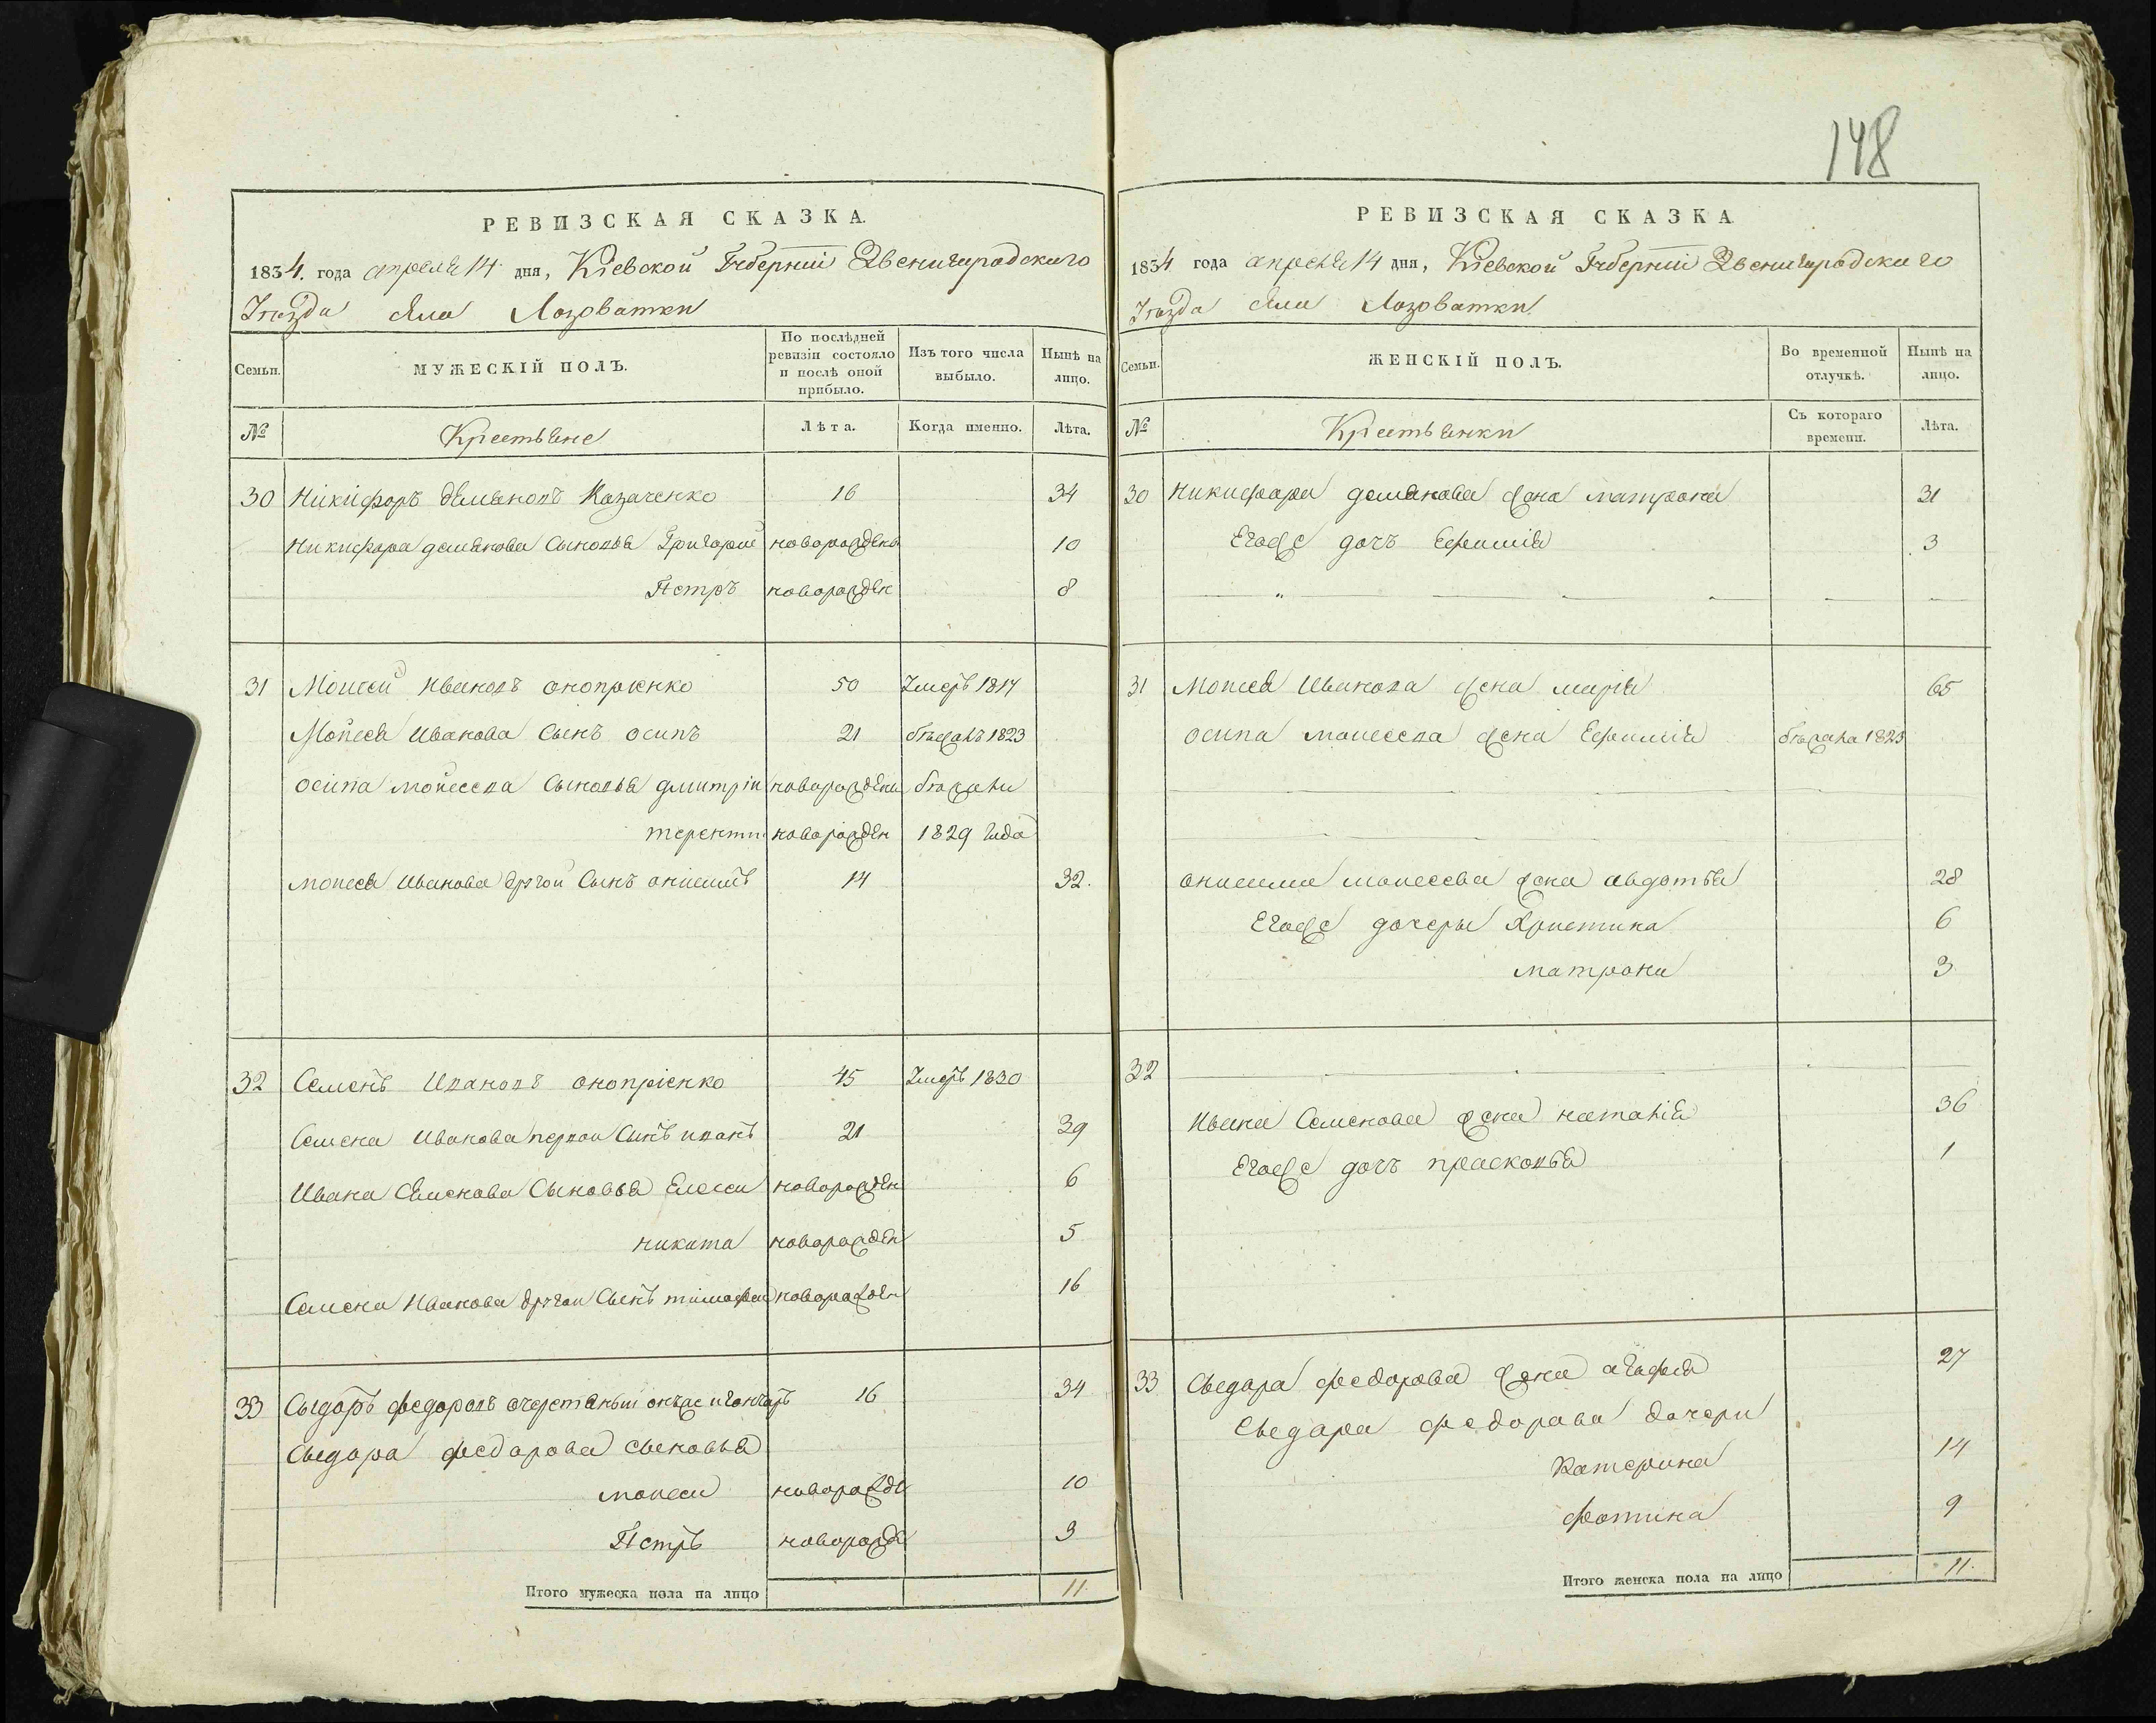 148
РЕВИЗСКАЯ СКАЗКА.
1834. года апреля 14 дня, Кіевской Губерніи Звенигородского
Уезда села Лозоватки
Семьи.
МУЖЕСКІЙ ПОЛЪ.
По послѣдней ревизіи состояло и послѣ оной прибыло.
Изъ того числа выбыло.
Нынѣ на лицо.
№ Крестьяне Лѣта. Когда именно. Лѣта.
30 Никифоръ демяновъ Казаченко 16 34
Никифора демянова Сыновья Григорие новорожден 10
Петръ новорожден 8
31 Моисей Ивановъ оноприенко 50 Умеръ 1817
Моисея Иванова Сынъ осипъ 21 бежалъ 1823
осипа моисеева Сыновья дмитрии новорождени бежали
теренти новорожден 1829 года
моисея Иванова другои Сынъ онисимъ 14 32.
32 Семенъ Ивановъ оноприенко 45 Умеръ 1830
Семена Иванова первои Сынъ иванъ 21 39
Ивана Семенова Сыновья Елесеи новорожден 6
никита новорожден 5
Семена Иванова другои Сынъ тимофеи новорожден 16
33 Сыдоръ федоровъ онъже и гончаръ 16 34
Сыдора федорова сыновья
моисеи новорожде 10
Петръ новорожде 3
Итого мужеска пола на лицо 11.
РЕВИЗСКАЯ СКАЗКА
1834 года апреля 14 дня, Кіевской Губерніи Звенигородского
Уезда села Лозоватки
Семьи.
ЖЕНСКІЙ ПОЛЪ.
Во временной отлучкѣ.
Нынѣ на лицо.
№ Крестьянки Съ котораго времени. Лѣта.
30 Никифора демянова жена матрона 31
Егоже дочъ Ефимия 3
"
31 Моисея Иванова жена мария 65
осипа моисеева жена Ефимия бежала 1823
онисима моисеева жена авдотья 28
Егоже дочеры Христина 6
матрона 3
32
Ивана Семенова жена наталия 36
Егоже дочъ прасковья 1
33 Сыдора федорова жена агафия 27
Сыдора федорова дочери
Катерина 14
фотина 9
Итого женска пола на лицо 11.